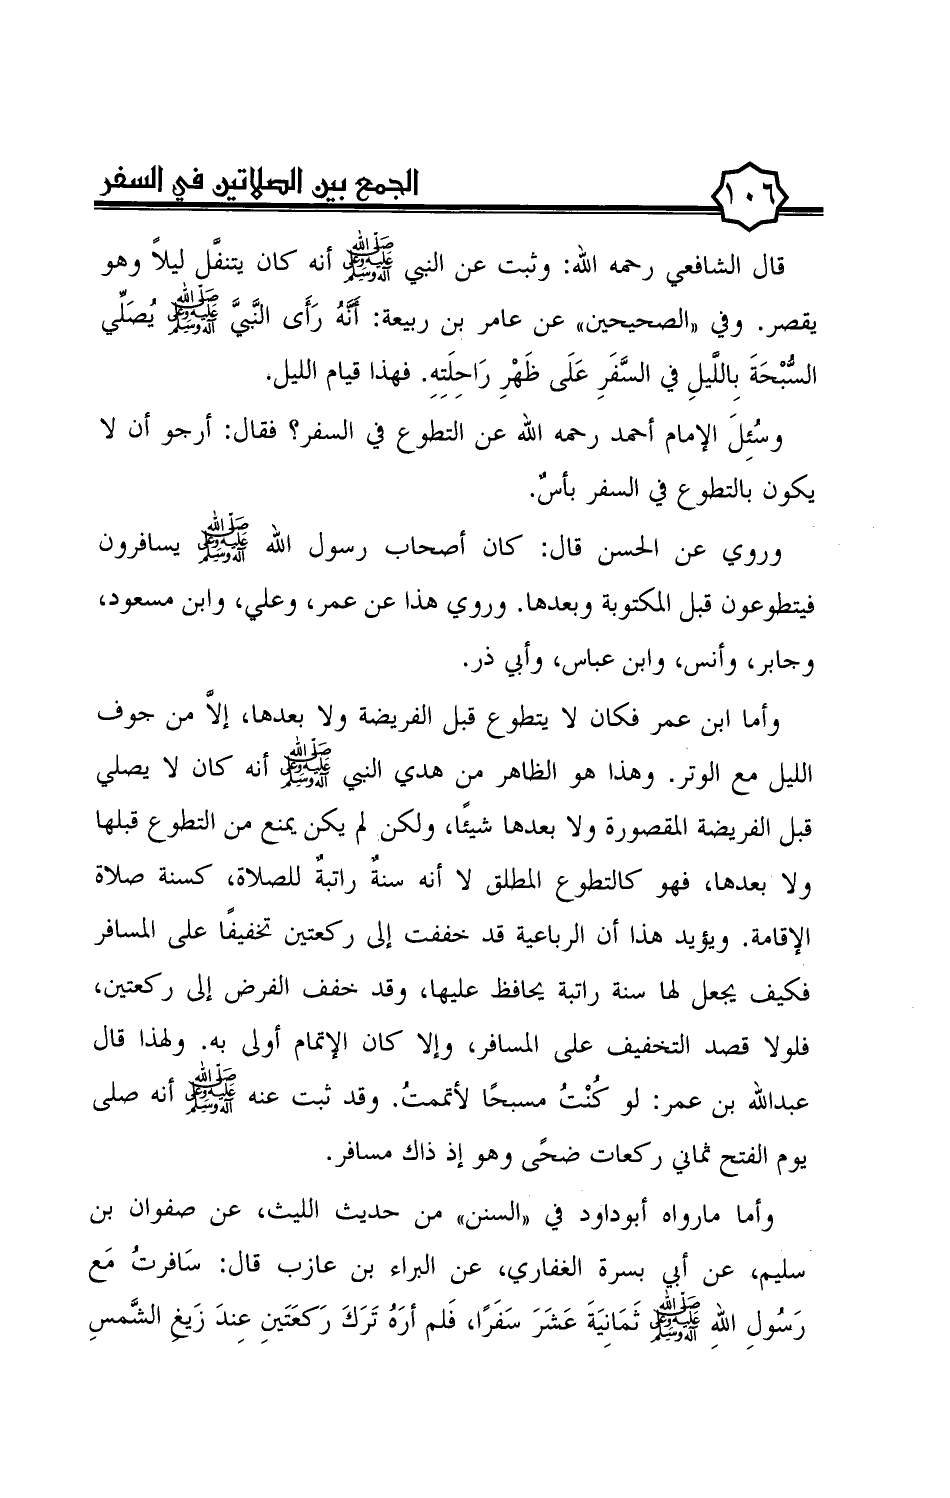 ١٠٦ الجمع بين الصلاتين في السفر
قال الشافعي رحمه الله: وثبت عن النبي ﷺ أنه كان يتنفَّل ليلاً وهو
يقصر. وفي «الصحيحين» عن عامر بن ربيعة: أَنَّهُ رَأَى النَّبِيَّ ﷺ يُصَلِّي
السُّبْحَةَ بِاللَّيلِ فِي السَّفَرِ عَلَى ظَهْرِ رَاحِلَتِهِ. فهذا قيام الليل.
وسُئِلَ الإمام أحمد رحمه الله عن التطوع في السفر؟ فقال: أرجو أن لا
يكون بالتطوع في السفر بأسٌ.
وروي عن الحسن قال: كان أصحاب رسول الله ﷺ يسافرون
فيتطوعون قبل المكتوبة وبعدها. وروي هذا عن عمر، وعلي، وابن مسعود،
وجابر، وأنس، وابن عباس، وأبي ذر.
وأما ابن عمر فكان لا يتطوع قبل الفريضة ولا بعدها، إلاَّ من جوف
الليل مع الوتر. وهذا هو الظاهر من هدي النبي ﷺ أنه كان لا يصلي
قبل الفريضة المقصورة ولا بعدها شيئًا، ولكن لم يكن يمنع من التطوع قبلها
ولا بعدها، فهو كالتطوع المطلق لا أنه سنةٌ راتبةٌ للصلاة، كسنة صلاة
الإقامة. ويؤيد هذا أن الرباعية قد خففت إلى ركعتين تخفيفًا على المسافر
فكيف يجعل لها سنة راتبة يحافظ عليها، وقد خفف الفرض إلى ركعتين،
فلولا قصد التخفيف على المسافر، وإلا كان الإتمام أولى به. ولهذا قال
عبدالله بن عمر: لو كُنْتُ مسبحًا لأتممتُ. وقد ثبت عنه ﷺ أنه صلى
يوم الفتح ثماني ركعات ضحًى وهو إذ ذاك مسافر.
وأما مارواه أبوداود في «السنن» من حديث الليث، عن صفوان بن
سليم، عن أبي بسرة الغفاري، عن البراء بن عازب قال: سَافرتُ مَع
رَسُولِ اللهِ ﷺ ثَمَانِيَةَ عَشَرَ سَفَرًا، فَلم أرَهُ تَرَكَ رَكعَتَينِ عِندَ زَيغِ الشَّمسِ